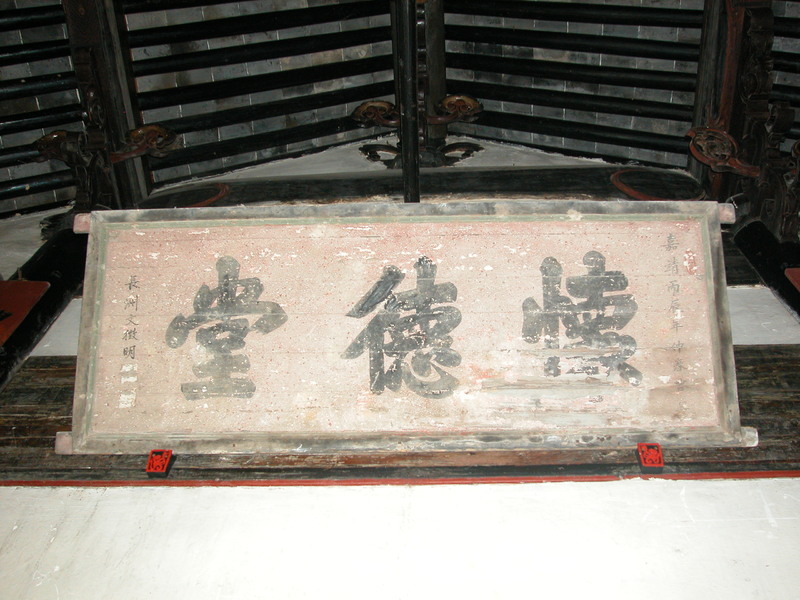 嘉靖丙辰年仲春
懷德堂
長洲文徵明